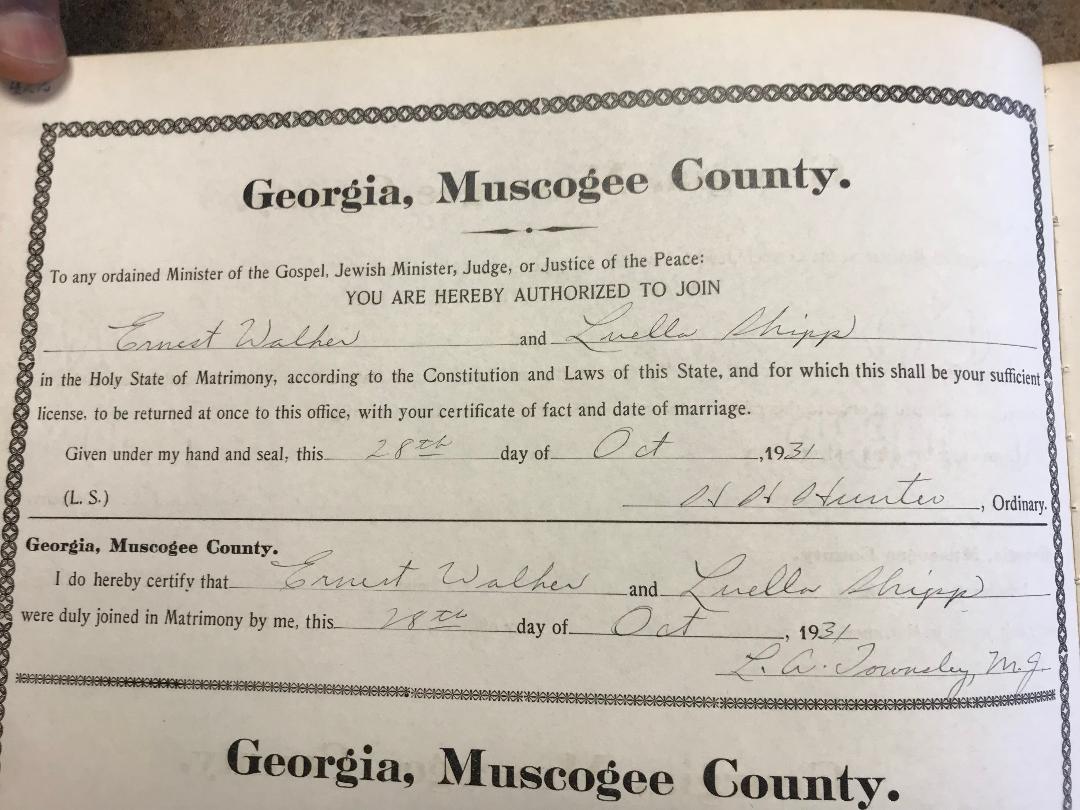 Georgia, Muscogee County.
To any ordained Minister of the Gospel, Jewish Minister, Judge, or Justice of the Peace:
YOU ARE HEREBY AUTHORIZED TO JOIN
Ernest Walker and Luella Shipp
in the Holy State of Matrimony, according to the Constitution and Laws of this State, and for which this shall be your sufficient
license, to be returned at once to this office, with your certificate of fact and date of marriage.
Given under my hand and seal, this 28th day of Oct, 1931
(L. S.) H H Hunter, Ordinary.
Georgia, Muscogee County.
I do hereby certify that Ernest Walker and Luella Shipp
were duly joined in Matrimony by me, this 28th day of Oct, 1931
L. A. Townsley, M.G.
Georgia, Muscogee County.